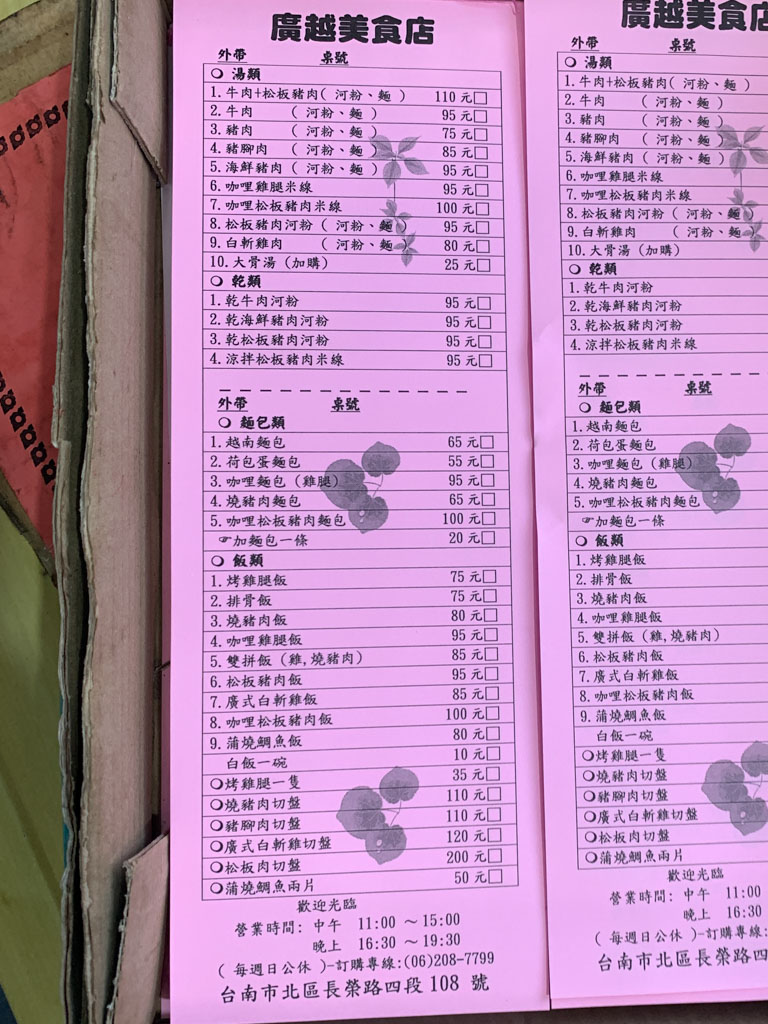 廣越美食店
外帶 桌號
○ 湯類
1.牛肉+松板豬肉( 河粉、麵 ) 110 元□
2.牛肉 ( 河粉、麵 ) 95 元□
3.豬肉 ( 河粉、麵 ) 75 元□
4.豬腳肉 ( 河粉、麵 ) 85 元□
5.海鮮豬肉 ( 河粉、麵 ) 95 元□
6.咖哩雞腿米線 95 元□
7.咖哩松板豬肉米線 100 元□
8.松板豬肉河粉 ( 河粉、麵 ) 95 元□
9.白斬雞肉 ( 河粉、麵 ) 80 元□
10.大骨湯 (加購) 25 元□
○ 乾類
1.乾牛肉河粉 95 元□
2.乾海鮮豬肉河粉 95 元□
3.乾松板豬肉河粉 95 元□
4.涼拌松板豬肉米線 95 元□
外帶 桌號
○ 麵包類
1.越南麵包 65 元□
2.荷包蛋麵包 55 元□
3.咖哩麵包 (雞腿) 95 元□
4.燒豬肉麵包 65 元□
5.咖哩松板豬肉麵包 100 元□
☞加麵包一條 20 元□
○ 飯類
1.烤雞腿飯 75 元□
2.排骨飯 75 元□
3.燒豬肉飯 80 元□
4.咖哩雞腿飯 95 元□
5.雙拼飯 (雞,燒豬肉) 85 元□
6.松板豬肉飯 95 元□
7.廣式白斬雞飯 85 元□
8.咖哩松板豬肉飯 100 元□
9.蒲燒鯛魚飯 80 元□
白飯一碗 10 元□
○烤雞腿一隻 35 元□
○燒豬肉切盤 110 元□
○豬腳肉切盤 110 元□
○廣式白斬雞切盤 120 元□
○松板肉切盤 200 元□
○蒲燒鯛魚兩片 50 元□
歡迎光臨
營業時間: 中午 11:00 ～ 15:00
晚上 16:30 ～ 19:30
( 每週日公休 )-訂購專線:(06)208-7799
台南市北區長榮路四段 108 號
廣越美食店
外帶 桌號
○ 湯類
1.牛肉+松板豬肉( 河粉、麵 )
2.牛肉 ( 河粉、麵 )
3.豬肉 ( 河粉、麵 )
4.豬腳肉 ( 河粉、麵 )
5.海鮮豬肉 ( 河粉、麵 )
6.咖哩雞腿米線
7.咖哩松板豬肉米線
8.松板豬肉河粉 ( 河粉、麵 )
9.白斬雞肉 ( 河粉、麵
10.大骨湯 (加購)
○ 乾類
1.乾牛肉河粉
2.乾海鮮豬肉河粉
3.乾松板豬肉河粉
4.涼拌松板豬肉米線
外帶 桌號
○ 麵包類
1.越南麵包
2.荷包蛋麵包
3.咖哩麵包 (雞腿)
4.燒豬肉麵包
5.咖哩松板豬肉麵包
☞加麵包一條
○ 飯類
1.烤雞腿飯
2.排骨飯
3.燒豬肉飯
4.咖哩雞腿飯
5.雙拼飯 (雞,燒豬肉)
6.松板豬肉飯
7.廣式白斬雞飯
8.咖哩松板豬肉飯
9.蒲燒鯛魚飯
白飯一碗
○烤雞腿一隻
○燒豬肉切盤
○豬腳肉切盤
○廣式白斬雞切盤
○松板肉切盤
○蒲燒鯛魚兩片
歡迎光臨
營業時間: 中午 11:00
晚上 16:30
( 每週日公休 )-訂購專線:
台南市北區長榮路四